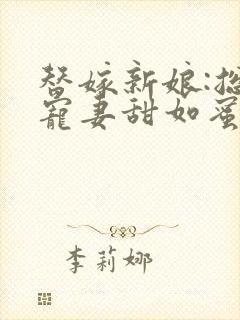 替嫁新娘:总
宠妻甜如蜜
李莉娜